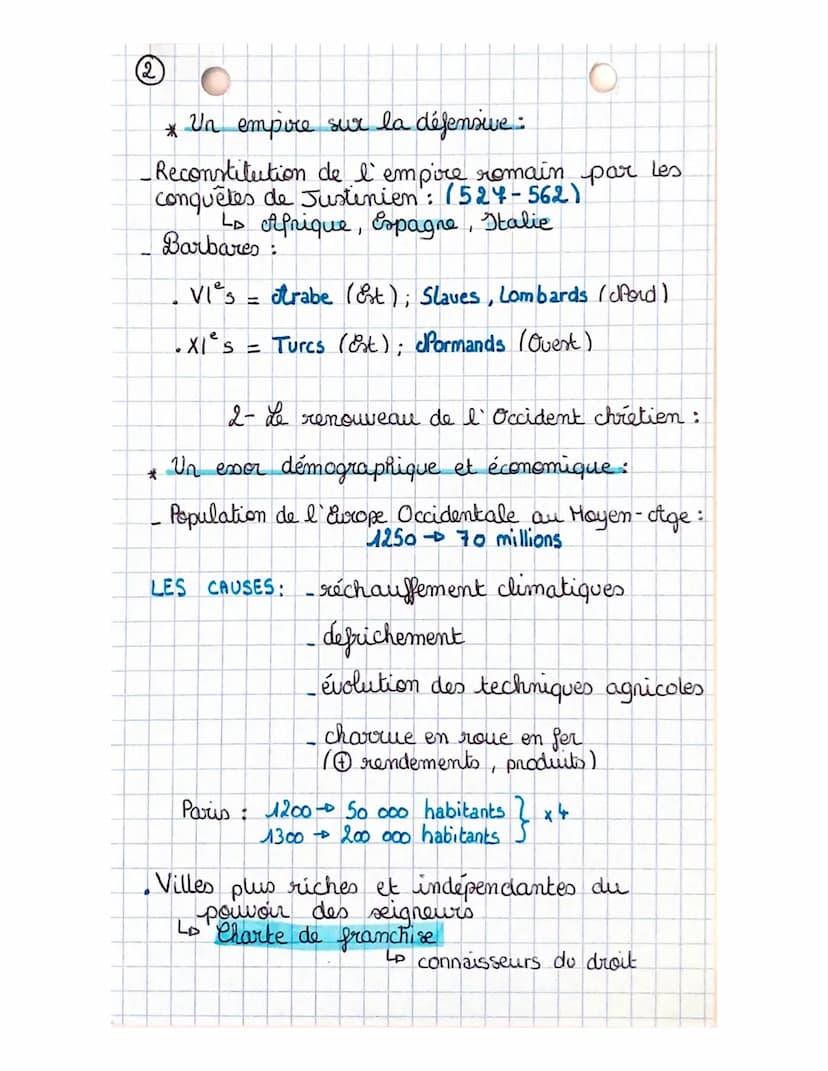 2
* Un empire sur la défensive :
- Reconstitution de l'empire romain par les
conquêtes de Justinien : (527-562)
↳ Afrique, Espagne, Italie
- Barbares :
. VIᵉs = Arabe (Est) ; Slaves, Lombards (Nord)
. XIᵉs = Turcs (Est) ; Normands (Ouest)
2- Le renouveau de l'Occident chrétien :
* Un essor démographique et économique :
- Population de l'Europe Occidentale au Moyen-Age :
1250 → 70 millions
LES CAUSES : - réchauffement climatiques
- defrichement
- évolution des techniques agricoles
- charrue en roue en fer
(⊕ rendements, produits)
Paris : 1200 → 50 000 habitants } x 4
1300 → 200 000 habitants
. Villes plus riches et indépendantes du
pouvoir des seigneurs
↳ Charte de franchise
↳ connaisseurs du droit